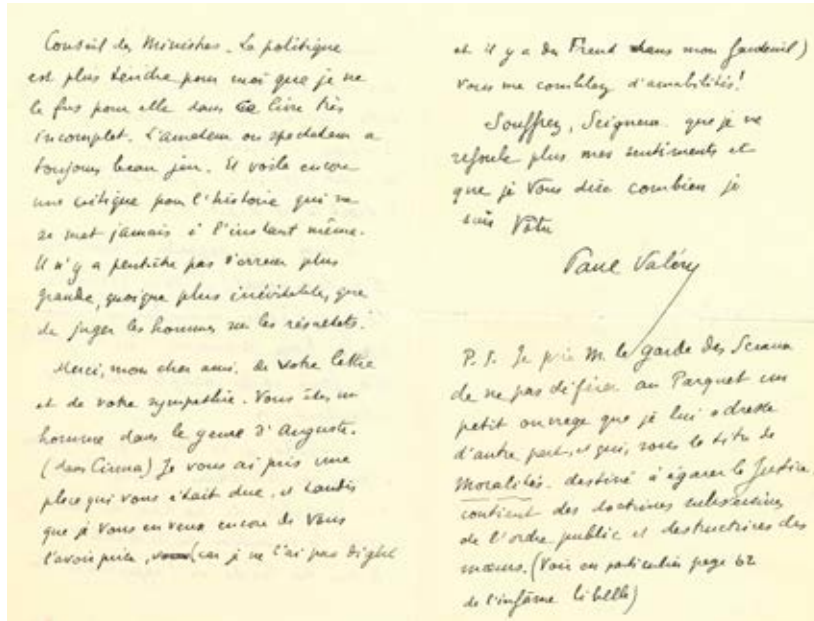 Conseil des Ministres. La politique
est plus tendre pour moi que je ne
le fus pour elle dans ce livre très
incomplet. L'amateur ou spectateur a
toujours beau jeu. Et voilà encore
une critique pour l'histoire qui ne
se met jamais à l'instant même.
Il n'y a peut-être pas d'erreur plus
grande, quoique plus inévitable, que
de juger les hommes sur les résultats.
Merci, mon cher ami, de votre lettre
et de votre sympathie. Vous êtes un
homme dans le genre d'Auguste.
(dans Cinna) Je vous ai pris une
place qui vous était due, et tandis
que je vous en veux encore de vous
l'avoir prise, (car je ne l'ai pas digéré
et il y a du Freud dans mon fauteuil)
vous me comblez d'amabilités!
Souffrez, Seigneur, que je ne
refoule plus mes sentiments et
que je vous dise combien je
suis Vôtre
Paul Valéry
P.S. Je prie M. le garde des Sceaux
de ne pas déférer au Parquet un
petit ouvrage que je lui adresse
d'autre part, et qui, sous le titre de
Moralités, destiné à égarer la Justice,
contient des doctrines subversives
de l'ordre public et destructrices des
mœurs. (Voir en particulier page 62
de l'infâme libelle)